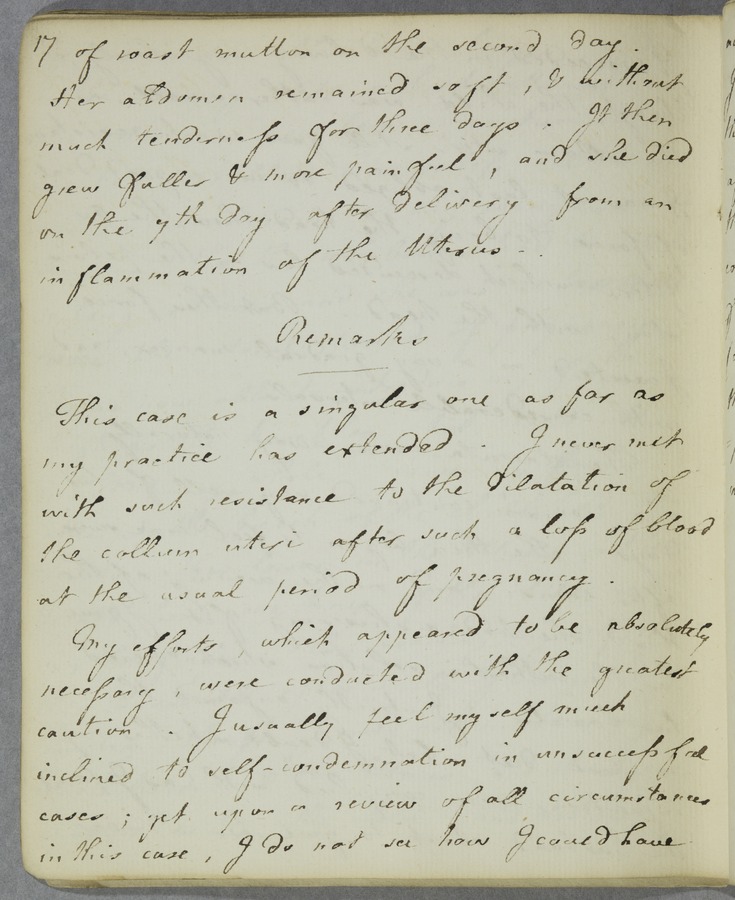 17 of roast mutton on the second day.
Her abdomen remained soft, & without
much tenderness for three days. It then
grew fuller & more painful, and she died
on the 7th day after delivery from an
inflammation of the Uterus -.
Remarks
This case is a singular one as far as
my practice has extended. I never met
with such resistance to the dilatation of
the collum uteri after such a loss of blood
at the usual period of pregnancy.
My efforts, which appeared to be absolutely
necessary, were conducted with the greatest
caution. I usually feel myself much
inclined to self-condemnation in unsuccessful
cases; yet upon a review of all circumstances
in this case, I do not see how I could have